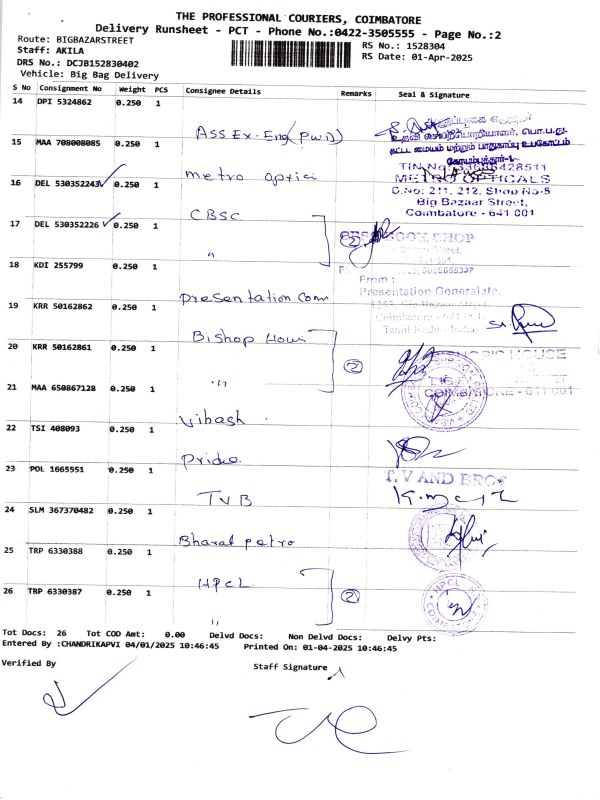 THE PROFESSIONAL COURIERS, COIMBATORE
Delivery Runsheet - PCT - Phone No.:0422-3505555 - Page No.:2
Route: BIGBAZARSTREET
RS No.: 1528304
Staff: AKILA
RS Date: 01-Apr-2025
DRS No.: DCJB152830402
Vehicle: Big Bag Delivery
S No Consignment No Weight PCS Consignee Details Remarks Seal & Signature
14 DPI 5324862 0.250 1
Ass Ex. Eng (PWD)
உதவி செயற்பொறியாளர், பொ.ப.து
கட்டட மையம் மற்றும் பாதுகாப்பு உபகோட்டம்
கோயமுத்தூர்-1
15 MAA 708008085 0.250 1
metro optici
METRO OPTICALS
D.No: 211, 212, Shop No-5
Big Bazaar Street,
Coimbatore - 641 001
16 DEL 530352243 0.250 1
CBSC
17 DEL 530352226 0.250 1
"
2
BOOK SHOP
18 KDI 255799 0.250 1
Presentation Conn
From :
Presentation Generalate,
Coimbatore - 641 001
Tamil Nadu - India
19 KRR 50162862 0.250 1
Bishop Hou
20 KRR 50162861 0.250 1
"
2
HOUSE
COIMBATORE - 641 001
21 MAA 650867128 0.250 1
Vibash
22 TSI 408093 0.250 1
Pride
23 POL 1665551 0.250 1
TVB
T. V AND BROS
24 SLM 367370482 0.250 1
Bharat petro
25 TRP 6330388 0.250 1
HPCL
26 TRP 6330387 0.250 1
"
2
HPCL
Tot Docs: 26 Tot COD Amt: 0.00 Delvd Docs: Non Delvd Docs: Delvy Pts:
Entered By :CHANDRIKAPVI 04/01/2025 10:46:45 Printed On: 01-04-2025 10:46:45
Verified By
Staff Signature